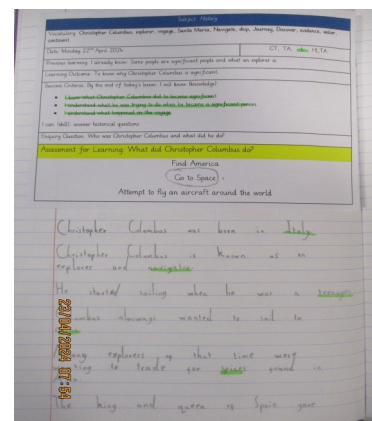 Subject: History
Vocabulary: Christopher Columbus, explorer, voyage, Santa Maria, Navigate, ship, Journey, Discover, evidence, sailor, continent
Date: Monday 22nd April 2024
CT, TA, HLTA
Previous learning: I already know: Some people are significant people and what an explorer is
Learning Outcome: To know why Christopher Columbus is significant.
Success Criteria: By the end of today's lesson: I will know: Knowledge?
I know what Christopher Columbus did to become significant
I understand what he was trying to do when he became a significant person.
I understand what happened on the voyage
I can (skill): answer historical questions
Enquiry Question: Who was Christopher Columbus and what did he do?
Assessment for Learning: What did Christopher Columbus do?
Find America
Go to Space
Attempt to fly an aircraft around the world
Christopher Columbus was born in Italy
Christopher Columbus is known as an
explorer and navigator
He started sailing when he was a teenager
always wanted to sail to
explorers of that time were
to trade for spices found in
The king and queen of Spain gave
23/04/2024 07:54